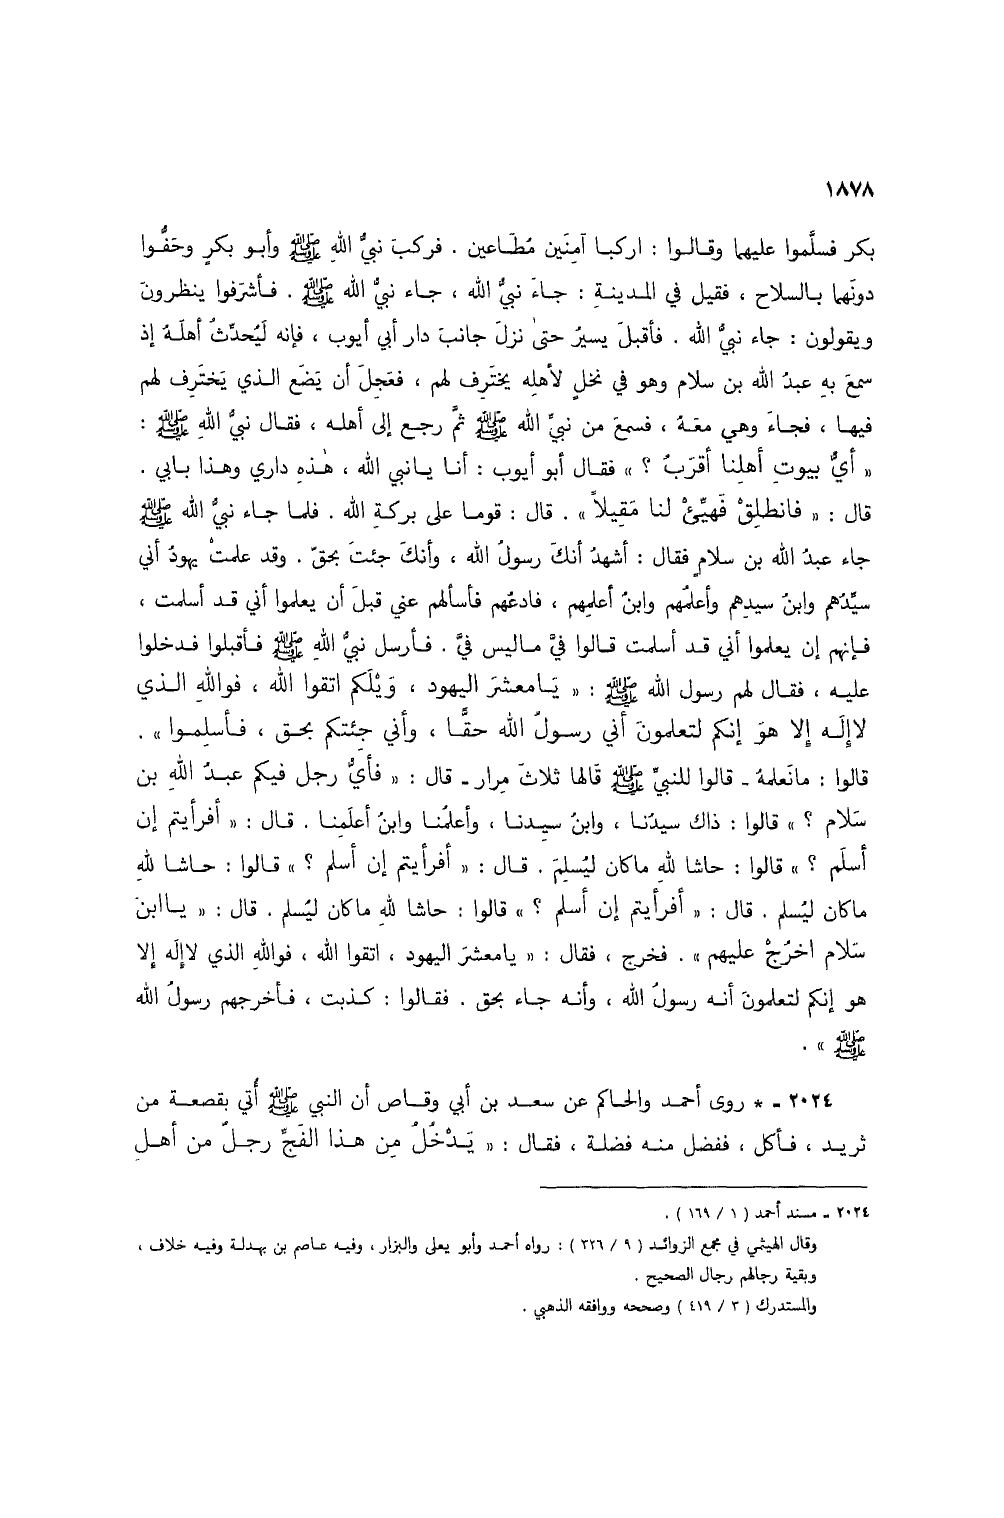 ١٨٧٨
بكر فسلَّموا عليهما وقالوا : اركبا آمنَين مُطَاعين . فركبَ نبيُّ اللهِ ﷺ وأبو بكرٍ وحَفُّوا
دونَهما بالسلاح ، فقيل في المدينةِ : جاءَ نبيُّ الله ، جاء نبيُّ الله ﷺ . فأشرَفوا ينظرونَ
ويقولون : جاء نبيُّ الله . فأقبلَ يسيرُ حتىٰ نزلَ جانبَ دار أبي أيوب ، فإنه لَيُحدِّثُ أهلَهُ إذ
سمعَ بهِ عبدُ الله بن سلام وهو في نخلٍ لأهلِه يختَرِف لهم ، فعَجِلَ أن يَضَع الذي يَختَرِف لهم
فيها ، فجاءَ وهي معَهُ ، فسمعَ من نبيِّ الله ﷺ ثمَّ رجع إلى أهله ، فقال نبيُّ اللهِ ﷺ :
« أيُّ بيوتِ أهلنا أقرَبُ ؟ » فقال أبو أيوب : أنا يانبي الله ، هٰذهِ داري وهذا بابي .
قال : « فانطلِقْ فَهيِّئْ لنا مَقيلاً » . قال : قوما على بركةِ الله . فلما جاء نبيُّ الله ﷺ
جاء عبدُ الله بن سلامٍ فقال : أشهدُ أنكَ رسولُ الله ، وأنكَ جئتَ بحقّ . وقد علمتْ يهودُ أني
سيِّدُهم وابنُ سيدِهم وأعلمُهم وابنُ أعلمِهم ، فادعُهم فأسألهم عني قبلَ أن يعلموا أني قد أسلمت ،
فإنهم إن يعلموا أني قد أسلمت قالوا فيَّ ماليس فيَّ . فأرسل نبيُّ اللهِ ﷺ فأقبلوا فدخلوا
عليه ، فقال لهم رسول الله ﷺ : « يَامعشرَ اليهود ، وَيْلَكم اتقوا الله ، فواللهِ الذي
لاإلَه إلا هوَ إنكم لتعلمونَ أني رسولُ الله حقًّا ، وأني جِئتكم بحق ، فأسلِموا » .
قالوا : مانَعلمهُ ـ قالوا للنبيِّ ﷺ قَالها ثلاثَ مِرار ـ قال : « فأيُّ رجل فيكم عبدُ اللهِ بن
سَلام ؟ » قالوا : ذاك سيدُنا ، وابنُ سيدنا ، وأعلمُنا وابنُ أعلَمِنا . قال : « أفرأيتم إن
أسلَم ؟ » قالوا : حاشا للهِ ماكان ليُسلِمَ . قال : « أفرأيتم إن أسلم ؟ » قالوا : حاشا للهِ
ماكان ليُسلم . قال : « أفرأيتم إن أسلم ؟ » قالوا : حاشا للهِ ماكان ليُسلم . قال : « ياابنَ
سَلام اخرُجْ عليهم » . فخرج ، فقال : « يامعشرَ اليهود ، اتقوا الله ، فواللهِ الذي لاإلَه إلا
هو إنكم لتعلمونَ أنه رسولُ الله ، وأنه جاء بحق . فقالوا : كذبت ، فأخرجهم رسولُ الله
ﷺ » .
٢٠٢٤ ـ * روى أحمد والحاكم عن سعد بن أبي وقاص أن النبي ﷺ أُتي بقصعة من
ثريد ، فأكل ، ففضل منه فضلة ، فقال : « يَدْخُلُ مِن هذا الفَجِّ رجلٌ من أهل
٢٠٢٤ ـ مسند أحمد ( ١ / ١٦٩ ) .
وقال الهيثمي في مجمع الزوائد ( ٩ / ٣٢٦ ) : رواه أحمد وأبو يعلى والبزار ، وفيه عاصم بن بهدلة وفيه خلاف ،
وبقية رجالهم رجال الصحيح .
والمستدرك ( ٣ / ٤١٩ ) وصححه ووافقه الذهبي .